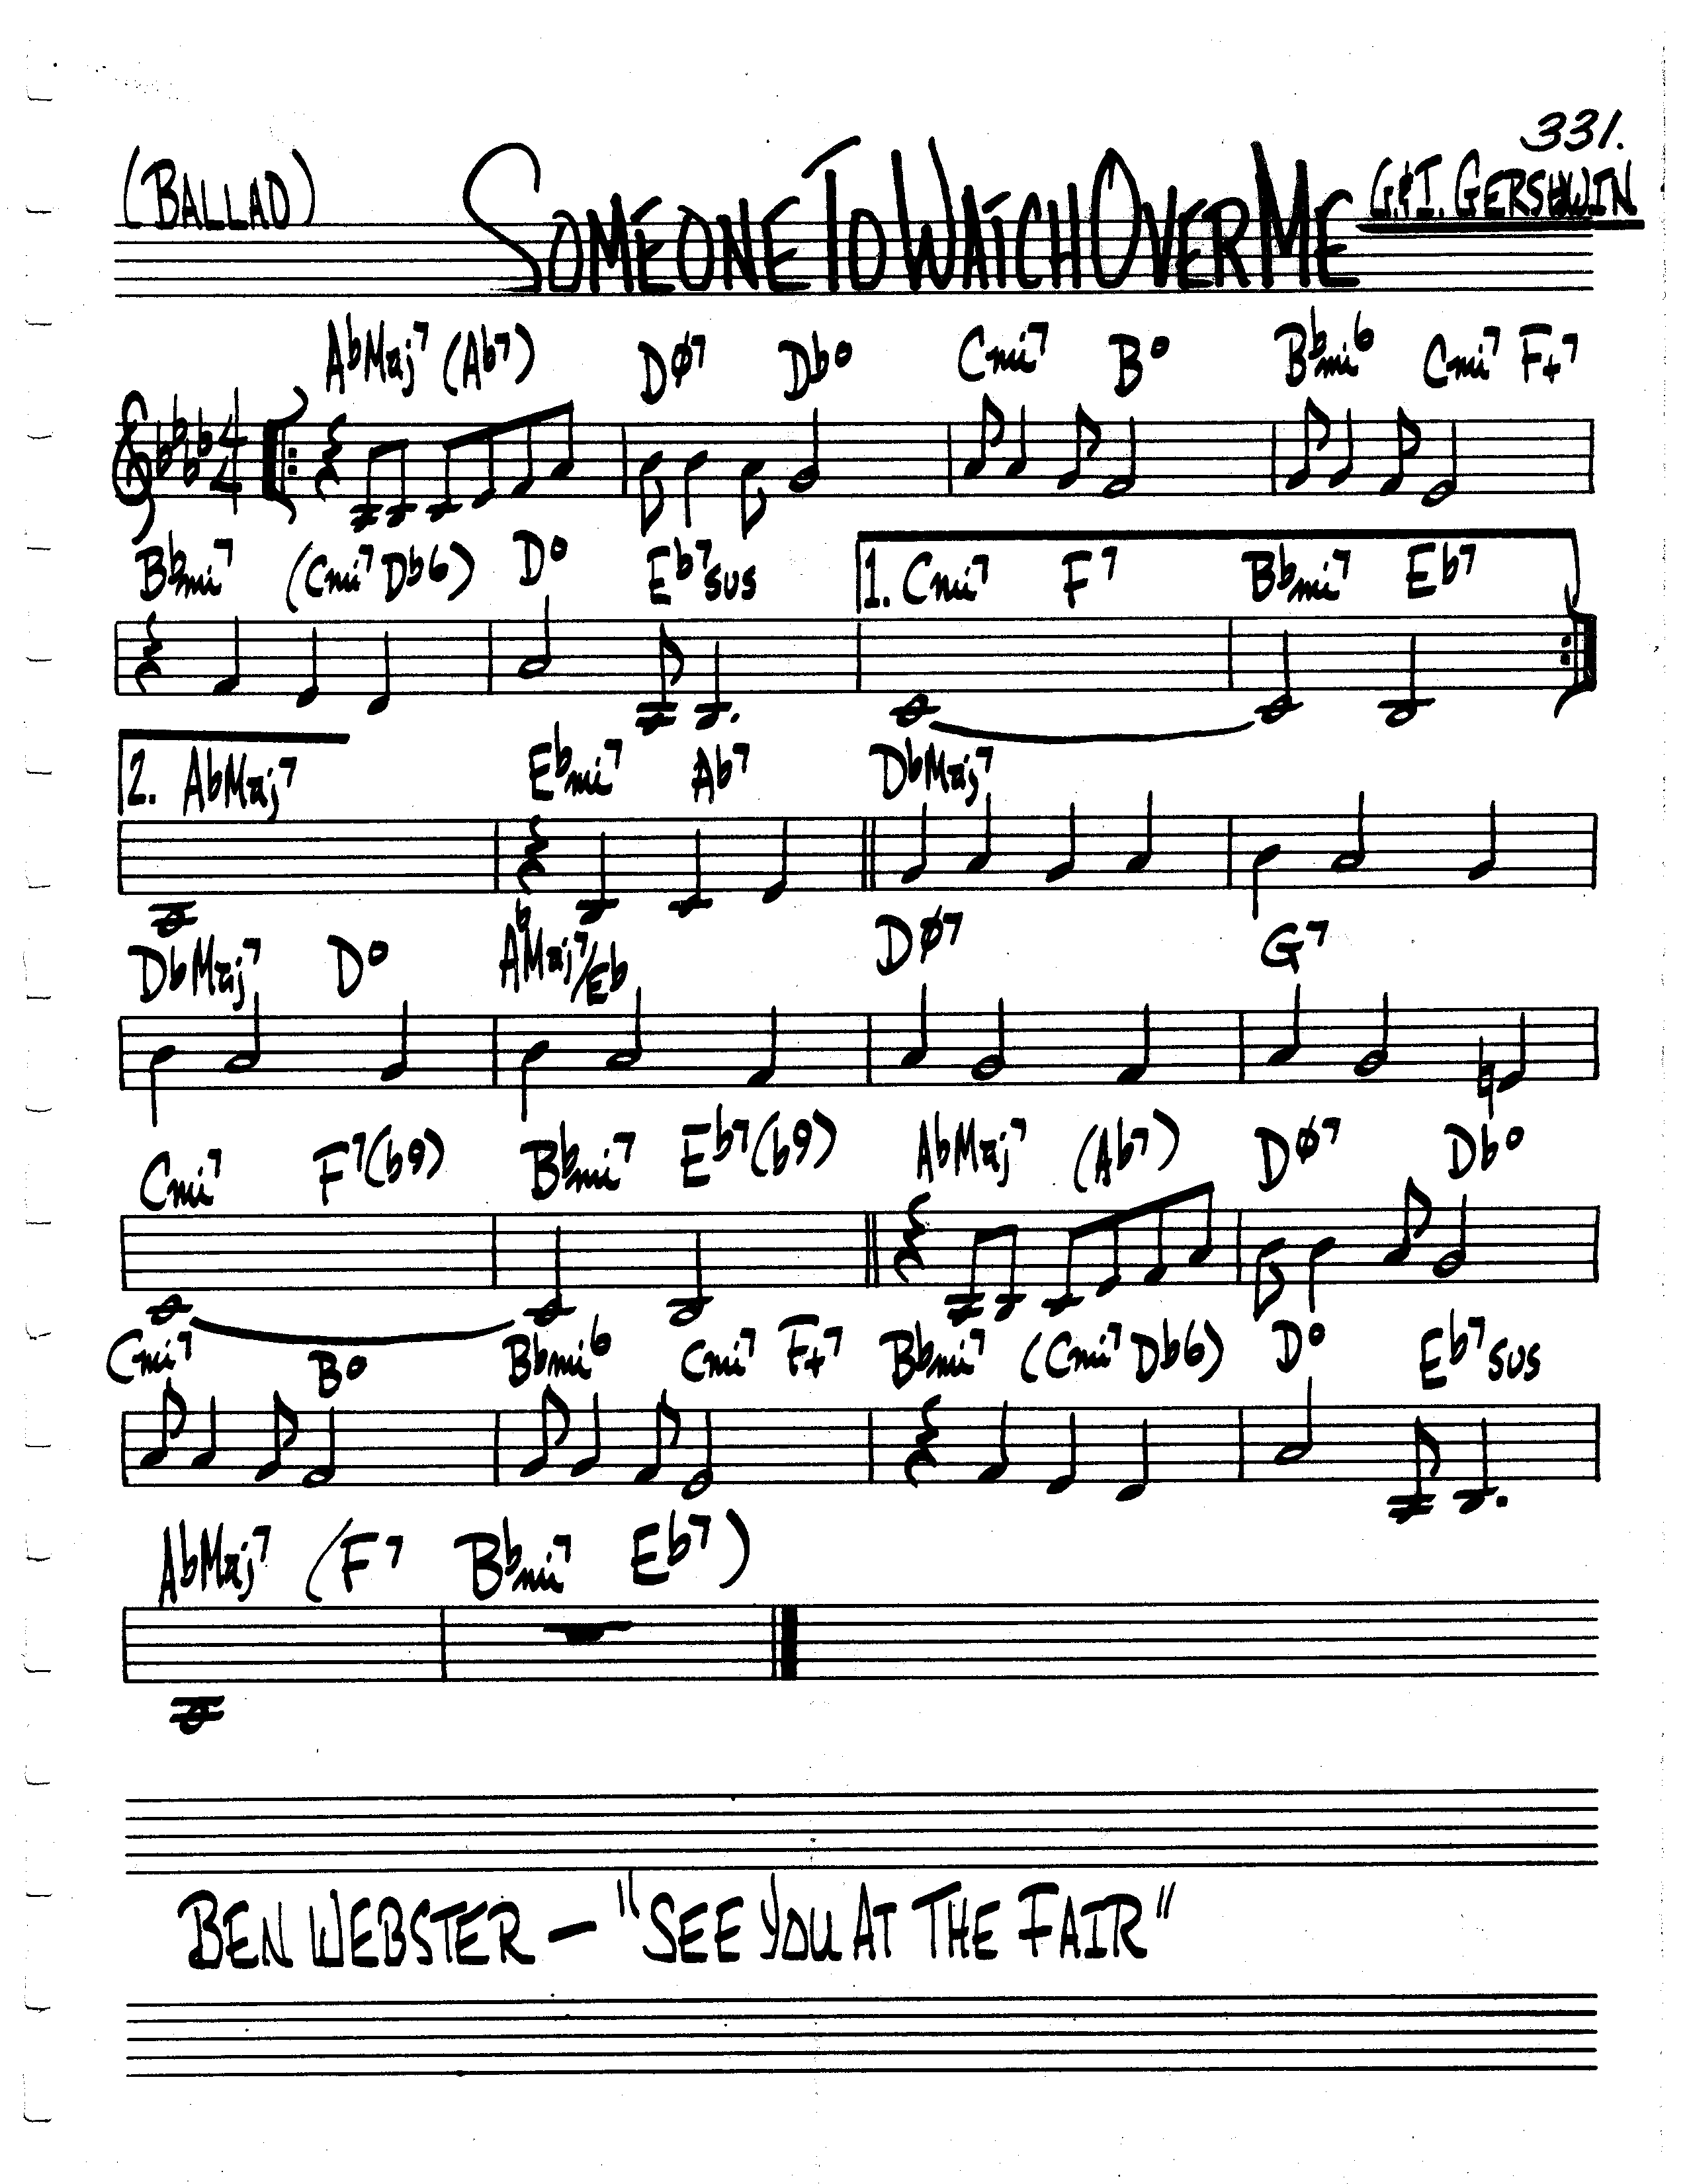 331.
(BALLAD) SOMEONE TO WATCH OVER ME G.&I. GERSHWIN
AbMaj7 (Ab7) DØ7 Dbo Cmi7 Bo Bbmi6 Cmi7 F+7
4
4
Bbmi7 (Cmi7 Db6) Do Eb7sus 1. Cmi7 F7 Bbmi7 Eb7
2. AbMaj7 Ebmi7 Ab7 DbMaj7
DbMaj7 Do AbMaj7/Eb DØ7 G7
Cmi7 F7(b9) Bbmi7 Eb7(b9) AbMaj7 (Ab7) DØ7 Dbo
Cmi7 Bo Bbmi6 Cmi7 F+7 Bbmi7 (Cmi7 Db6) Do Eb7sus
AbMaj7 (F7 Bbmi7 Eb7)
BEN WEBSTER — "SEE YOU AT THE FAIR"